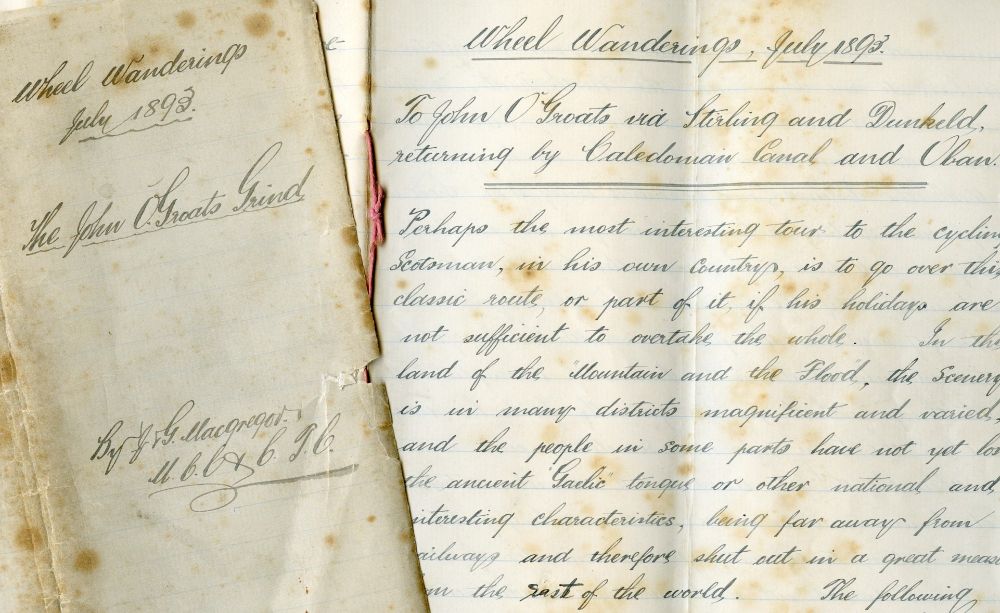 Wheel Wanderings
July 1893.
The John O'Groats Grind
By J. G. Macgregor.
M.C.C. & C.T.C.
Wheel Wanderings, July 1893.
To John O'Groats viâ Stirling and Dunkeld,
returning by Caledonian Canal and Oban.
Perhaps the most interesting tour to the cyclin
Scotsman, in his own Country, is to go over this
classic route, or part of it, if his holidays are
not sufficient to overtake the whole. In the
land of the "Mountain and the Flood", the Scenery
is in many districts magnificent and varied,
and the people in some parts have not yet los
the ancient "Gaelic" tongue or other national and
interesting characteristics, being far away from
ailways and therefore shut out in a great meas
m the rest of the world. The following